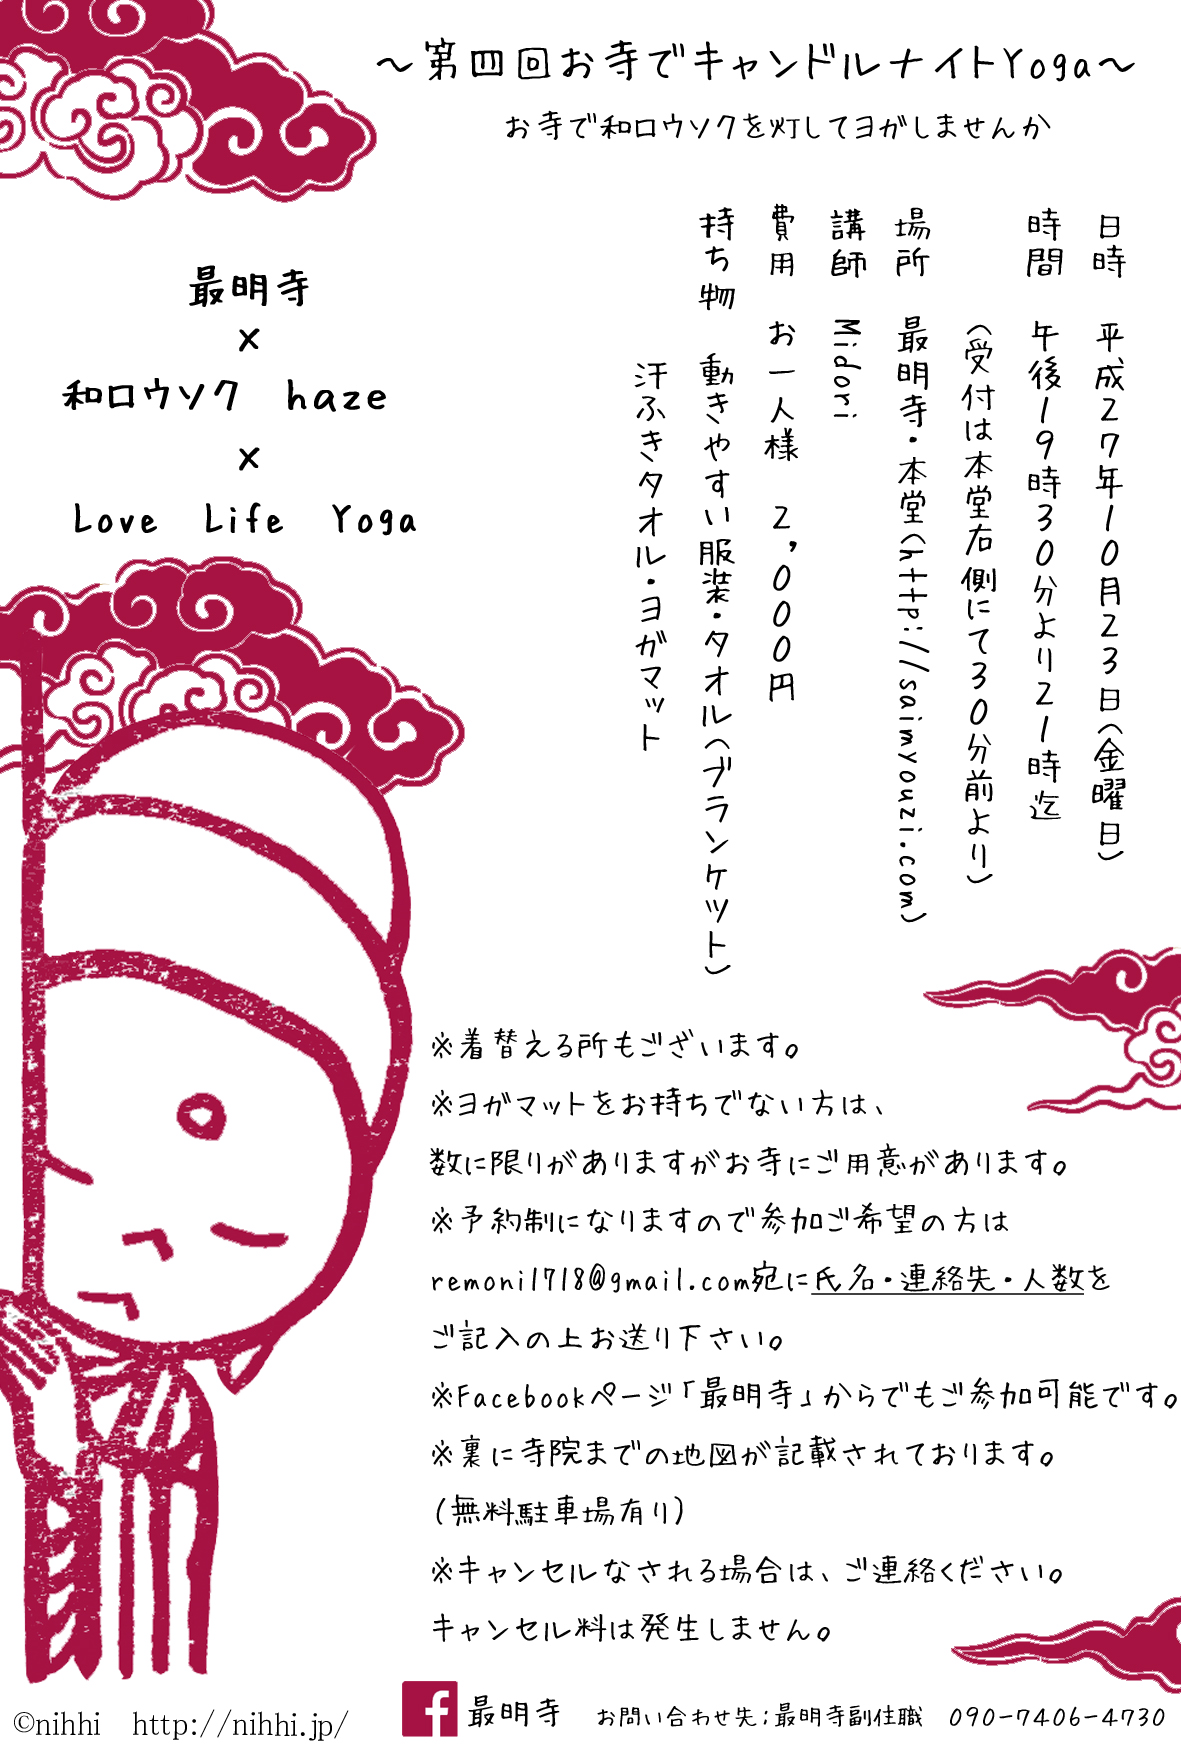 ～第四回お寺でキャンドルナイトYoga～
お寺で和ロウソクを灯してヨガしませんか
日時　平成27年10月23日(金曜日)
時間　午後19時30分より21時迄
(受付は本堂右側にて30分前より)
場所　最明寺・本堂(http://saimyouzi.com)
講師　Midori
費用　お一人様　2,000円
持ち物　動きやすい服装・タオル(ブランケット)
汗ふきタオル・ヨガマット
最明寺
×
和ロウソク　haze
×
Love　Life　Yoga
※着替える所もございます。
※ヨガマットをお持ちでない方は、
数に限りがありますがお寺にご用意があります。
※予約制になりますので参加ご希望の方は
remoni1718@gmail.com宛に氏名・連絡先・人数を
ご記入の上お送り下さい。
※Facebookページ「最明寺」からでもご参加可能です。
※裏に寺院までの地図が記載されております。
(無料駐車場有り)
※キャンセルなされる場合は、ご連絡ください。
キャンセル料は発生しません。
©nihhi　http://nihhi.jp/
f 最明寺　お問い合わせ先；最明寺副住職　090-7406-4730